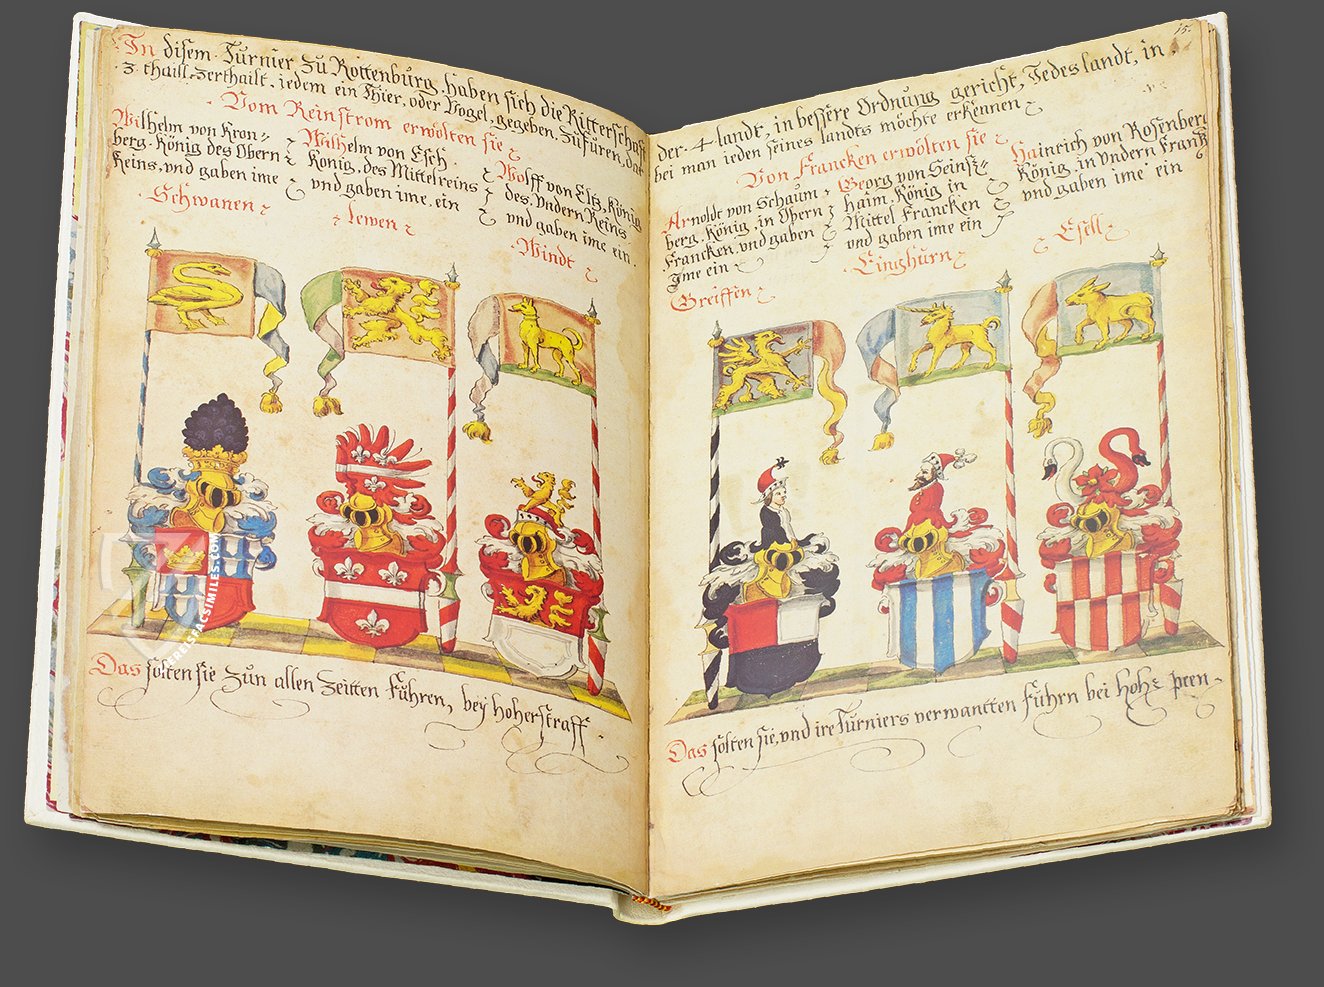 In disem Turnier Zu Rottenburg haben sich die Ritterschafft
.3. thaill Zerthailt, iedem ein Thier, oder Vogel, gegeben Zufüren, dat
Vom Reinstrom erwölten sie
Wilhelm von Kron-
berg, König des Obern
Reins, vnd gaben ime
Schwanen
Wilhelm von Esch.
König, des Mittelreins
vnd gaben ime, ein
Lewen
Wolff von Eltz, König
des, Vndern Reins
vnd gaben ime ein
Windt
Das solten sie Zün allen Zeitten Führen, bey hoherstraff.
15.
der .4. landt, in bessere Ordnung gericht, Jedes landt, in
bei man ieden seines landts möchte erkennen
Von Francken erwölten sie
Arnoldt von Schaum
berg, König, in Obern
Francken, vnd gaben
Ime ein
Greiffen
Georg von Seinsz-
haim, König, in
Mittel Francken
vnd gaben ime ein
Einghürn
Hainrich von Rosenberg
König, in Vndern Franck
vnd gaben ime ein
Esell
Das solten sie, vnd ire Turniers verwantten Führn bei hohe peen.
FACSIMILES.COM